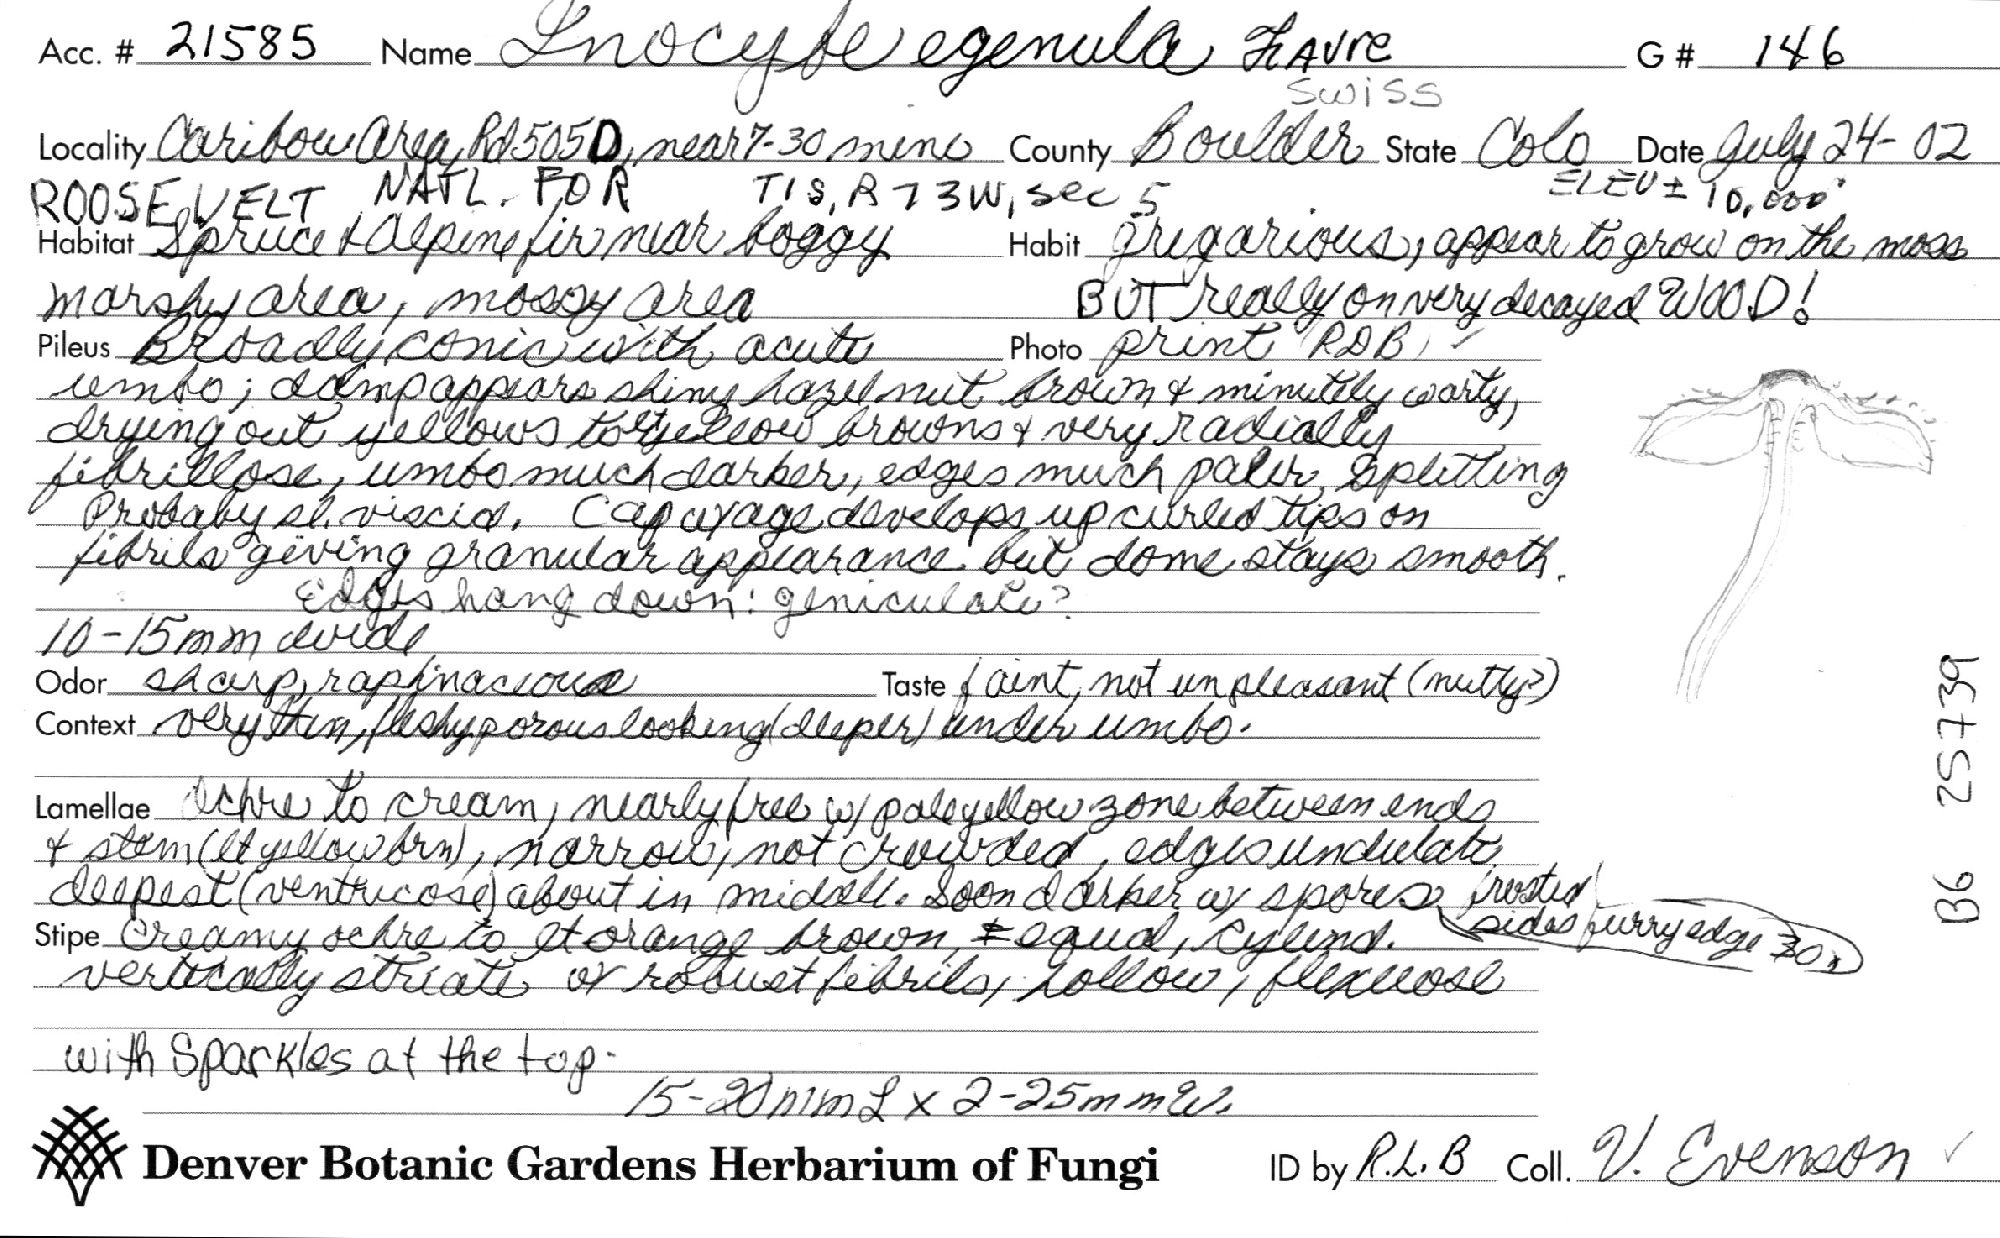 Acc. # 21585 Name Inocybe egenula Favre G # 146
Swiss
Locality Caribou Area, Rd 505D, near 7-30 mine County Boulder State Colo Date July 24-02
ROOSEVELT NATL. FOR T1S, R73W, sec 5 ELEV ± 10,000'
Habitat Spruce & Alpine fir near boggy Habit gregarious, appear to grow on the moss
marshy area, mossy area BUT really on very decayed WOOD!
Pileus Broadly conic with acute Photo print RDB
umbo; damp appears shiny hazel nut brown & minutely warty,
drying out yellows to yellow browns & very radially
fibrillose, umbo much darker, edges much paler, splitting
Probaby sl. viscid. Cap w/age develops up curled tips on
fibrils giving granular appearance but dome stays smooth.
Edges hang down: geniculate?
10-15mm wide
Odor sharp, raphnaceous Taste faint, not unpleasant (nutty?)
Context very thin, fleshy porous looking (deeper) under umbo.
Lamellae Ochre to cream, nearly free w/ pale yellow zone between ends
& stem (lt yellow brn), narrow, not crowded, edges undulate
deepest (ventricose) about in middle. Soon darker w/ spores frosted
sides furry edge 30x
Stipe Creamy ochre to lt orange brown, ± equal, cylind.
vertically striate w/ robust fibrils, hollow, flexuose
with Sparkles at the top.
15-20mm L x 2-25mm W.
Denver Botanic Gardens Herbarium of Fungi ID by R.L.B Coll. V. Evenson
B6 25739